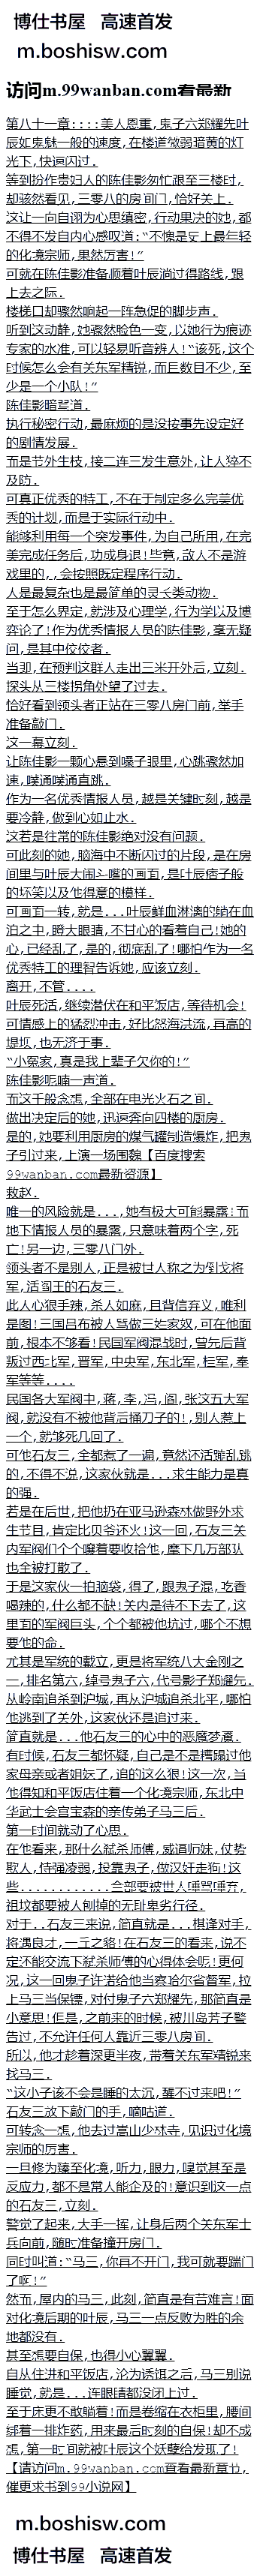 博仕书屋 高速首发
m.boshisw.com
访问m.99wanban.com看最新
第八十一章::::美人恩重,鬼子六郑耀先叶
辰如鬼魅一般的速度,在楼道微弱暗黄的灯
光下,快速闪过.
等到扮作贵妇人的陈佳影匆忙跟至三楼时,
却骇然看见,三零八的房间门,恰好关上.
这让一向自诩为心思缜密,行动果决的她,都
不得不发自内心感叹道:“不愧是史上最年轻
的化境宗师,果然厉害!”
可就在陈佳影准备顺着叶辰淌过得路线,跟
上去之际.
楼梯口却骤然响起一阵急促的脚步声.
听到这动静,她骤然脸色一变,以她行为痕迹
专家的水准,可以轻易听音辨人!“该死,这个
时候怎么会有关东军精锐,而且数目不少,至
少是一个小队!”
陈佳影暗骂道.
执行秘密行动,最麻烦的是没按事先设定好
的剧情发展.
而是节外生枝,接二连三发生意外,让人猝不
及防.
可真正优秀的特工,不在于制定多么完美优
秀的计划,而是于实际行动中.
能够利用每一个突发事件,为自己所用,在完
美完成任务后,功成身退!毕竟,敌人不是游
戏里的,,会按照既定程序行动.
人是最复杂也是最简单的灵长类动物.
至于怎么界定,就涉及心理学,行为学以及博
弈论了!作为优秀情报人员的陈佳影,毫无疑
问,是其中佼佼者.
当即,在预判这群人走出三米开外后,立刻.
探头从三楼拐角处望了过去.
恰好看到领头者正站在三零八房门前,举手
准备敲门.
这一幕立刻.
让陈佳影一颗心悬到嗓子眼里,心跳骤然加
速,噗通噗通直跳.
作为一名优秀情报人员,越是关键时刻,越是
要冷静,做到心如止水.
这若是往常的陈佳影绝对没有问题.
可此刻的她,脑海中不断闪过的片段,是在房
间里与叶辰大闹斗嘴的画面,是叶辰痞子般
的坏笑以及他得意的模样.
可画面一转,就是...叶辰鲜血淋漓的躺在血
泊之中,瞪大眼睛,不甘心的看着自己!她的
心,已经乱了,是的,彻底乱了!哪怕作为一名
优秀特工的理智告诉她,应该立刻.
离开,不管....
叶辰死活,继续潜伏在和平饭店,等待机会!
可情感上的猛烈冲击,好比怒海洪流,再高的
堤坝,也无济于事.
“小冤家,真是我上辈子欠你的!”
陈佳影呢喃一声道.
而这千般念想,全部在电光火石之间.
做出决定后的她,迅速奔向四楼的厨房.
是的,她要利用厨房的煤气罐制造爆炸,把鬼
子引过来,上演一场围魏【百度搜索
99wanban.com最新资源】
救赵.
唯一的风险就是...,她有极大可能暴露!而
地下情报人员的暴露,只意味着两个字,死
亡!另一边,三零八门外.
领头者不是别人,正是被世人称之为倒戈将
军,活阎王的石友三.
此人心狠手辣,杀人如麻,且背信弃义,唯利
是图!三国吕布被人骂做三姓家奴,可在他面
前,根本不够看!民国军阀混战时,曾先后背
叛过西北军,晋军,中央军,东北军,桂军,奉
军等等....
民国各大军阀中,蒋,李,冯,阎,张这五大军
阀,就没有不被他背后捅刀子的!,别人惹上
一个,就够死几回了.
可他石友三,全都惹了一遍,竟然还活蹦乱跳
的,不得不说,这家伙就是...求生能力是真
的强.
若是在后世,把他扔在亚马逊森林做野外求
生节目,肯定比贝爷还火!这一回,石友三关
内军阀们个个嚷着要收拾他,麾下几万部队
也全被打散了.
于是这家伙一拍脑袋,得了,跟鬼子混,吃香
喝辣的,什么都不缺!关内是待不下去了,这
里面的军阀巨头,个个都被他坑过,哪个不想
要他的命.
尤其是军统的戴立,更是将军统八大金刚之
一,排名第六,绰号鬼子六,代号影子郑耀先.
从岭南追杀到沪城,再从沪城追杀北平,哪怕
他逃到了关外,这家伙还是追过来.
简直就是...他石友三的心中的恶魔梦魇.
有时候,石友三都怀疑,自己是不是糟蹋过他
家母亲或者姐妹了,追的这么狠!这一次,当
他得知和平饭店住着一个化境宗师,东北中
华武士会宫宝森的亲传弟子马三后.
第一时间就动了心思.
在他看来,那什么弑杀师傅,威逼师妹,仗势
欺人,恃强凌弱,投靠鬼子,做汉奸走狗!这
些............全部要被世人唾骂唾弃,
祖坟都要被人刨掉的无耻卑劣行径.
对于..石友三来说,简直就是...棋逢对手,
将遇良才,一丘之貉!在石友三的看来,说不
定还能交流下弑杀师傅的心得体会呢!更何
况,这一回鬼子许诺给他当察哈尔省督军,拉
上马三当保镖,对付鬼子六郑耀先,那简直是
小意思!但是,之前来的时候,被川岛芳子警
告过,不允许任何人靠近三零八房间.
所以,他才趁着深更半夜,带着关东军精锐来
找马三.
“这小子该不会是睡的太沉,醒不过来吧!”
石友三放下敲门的手,嘀咕道.
可转念一想,他去过嵩山少林寺,见识过化境
宗师的厉害.
一旦修为臻至化境,听力,眼力,嗅觉甚至是
反应力,都不是常人能企及的!意识到这一点
的石友三,立刻.
警觉了起来,大手一挥,让身后两个关东军士
兵向前,随时准备撞开房门.
同时叫道:“马三,你再不开门,我可就要踹门
了啊!”
然而,屋内的马三,此刻,简直是有苦难言!面
对化境后期的叶辰,马三一点反败为胜的余
地都没有.
甚至想要自保,也得小心翼翼.
自从住进和平饭店,沦为诱饵之后,马三别说
睡觉,就是...连眼睛都没闭上过.
至于床更不敢躺着!而是卷缩在衣柜里,腰间
绑着一排炸药,用来最后时刻的自保!却不成
想,第一时间就被叶辰这个妖孽给发现了!
【请访问m.99wanban.com查看最新章节,
催更求书到99小说网】
m.boshisw.com
博仕书屋 高速首发